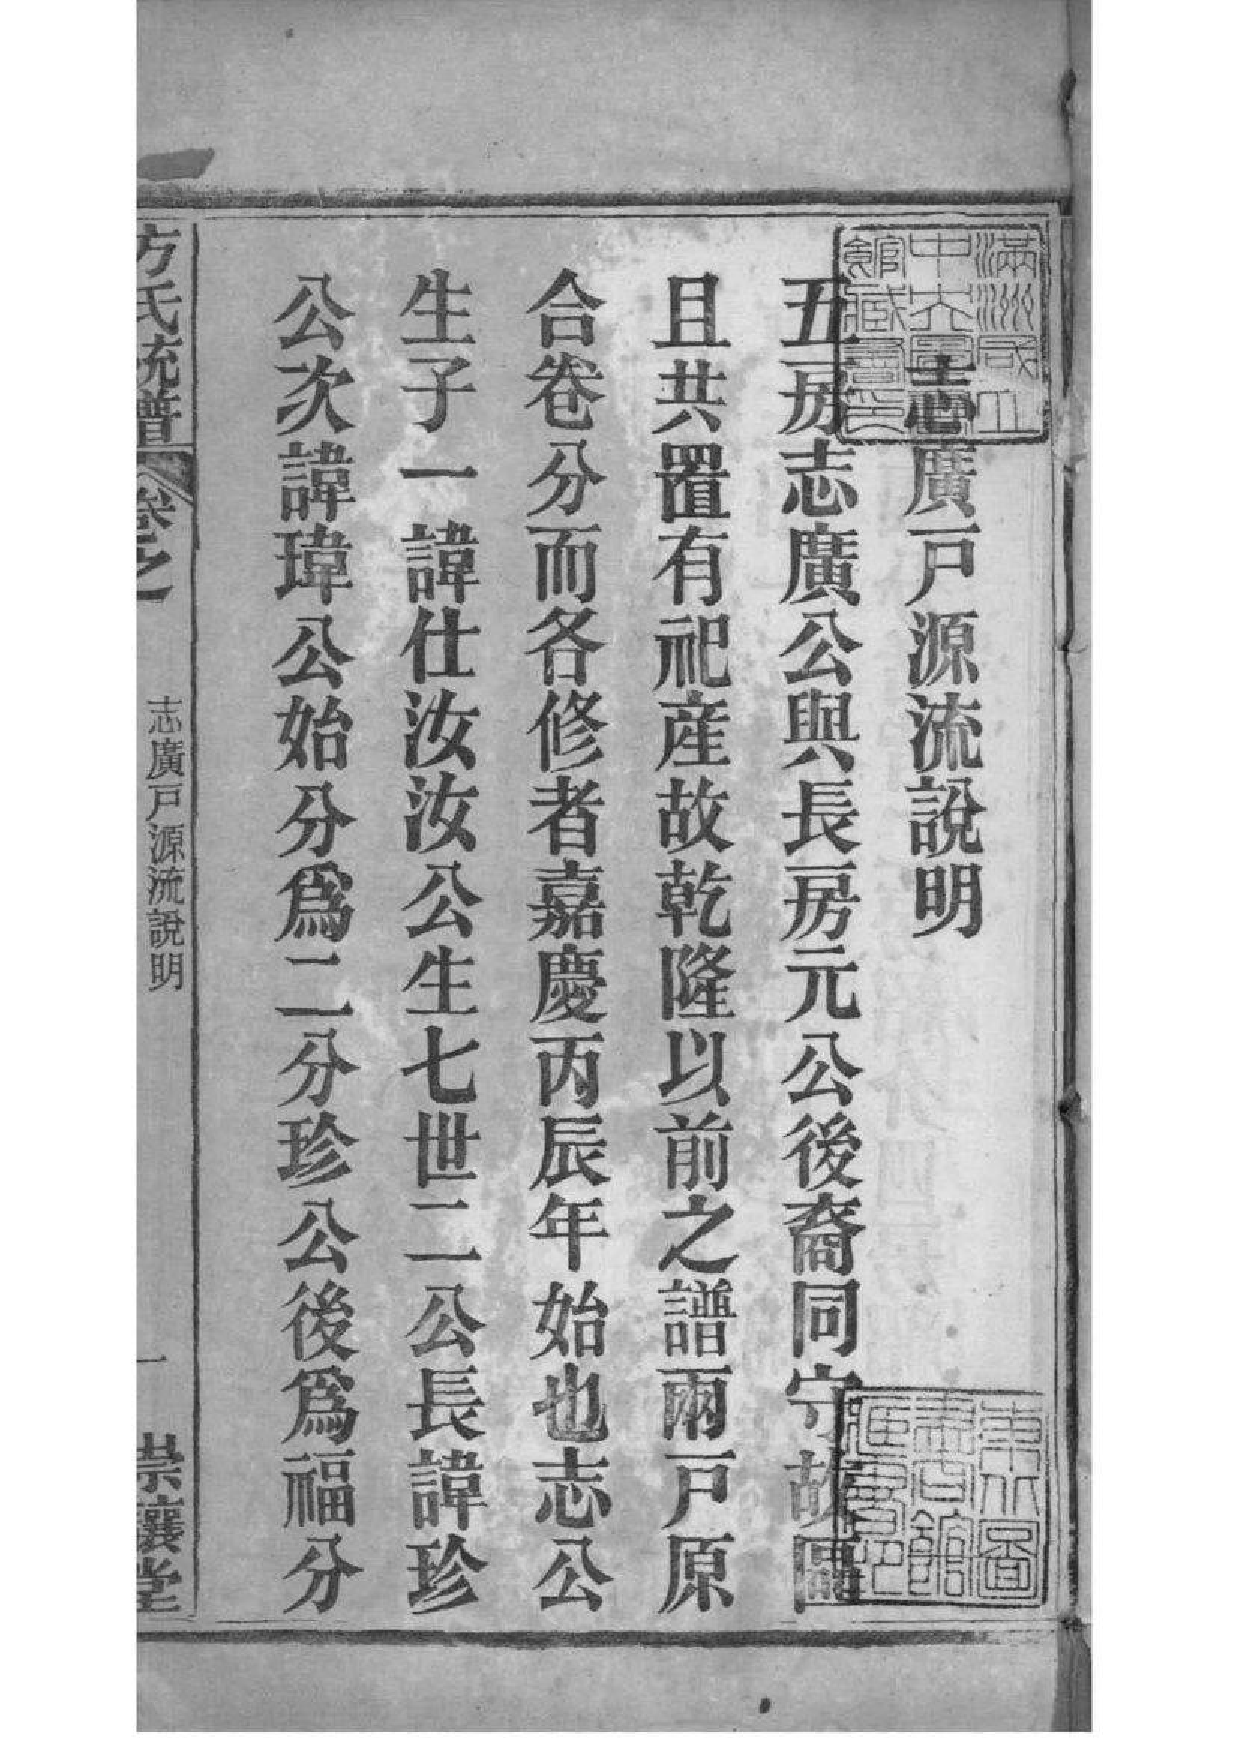 志廣戸源流說明
五房志廣公與長房元公後裔同守故區
且共置有祀産故乾隆以前之譜兩戸原
合卷分而各修者嘉慶丙辰年始也志公
生子一諱仕汝汝公生七世二公長諱珍
公次諱瑋公始分爲二分珍公後爲福分
方氏統譜
卷之
志廣戸源流說明
一
崇讓堂
滿洲國立
中央圖書
館藏書印
東北圖
書館